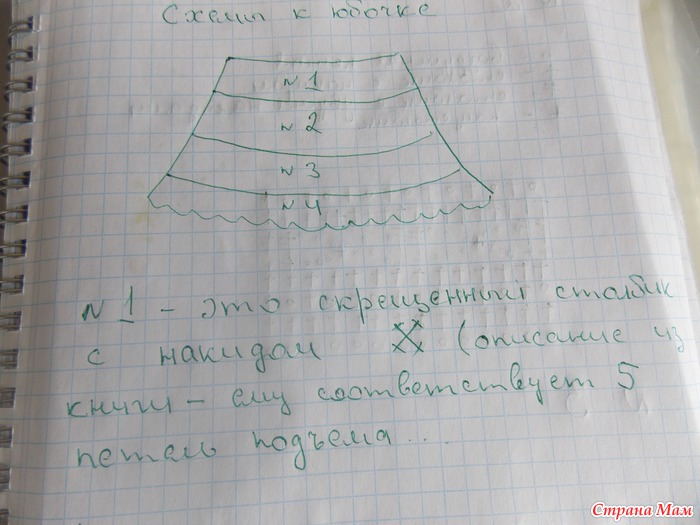 Схемы к юбочке
№ 1
№ 2
№ 3
№ 4
№ 1 - это скрещенный столбик
с накидом (описание из
книги - ему соответствует 5
петель подъема...
Страна Мам